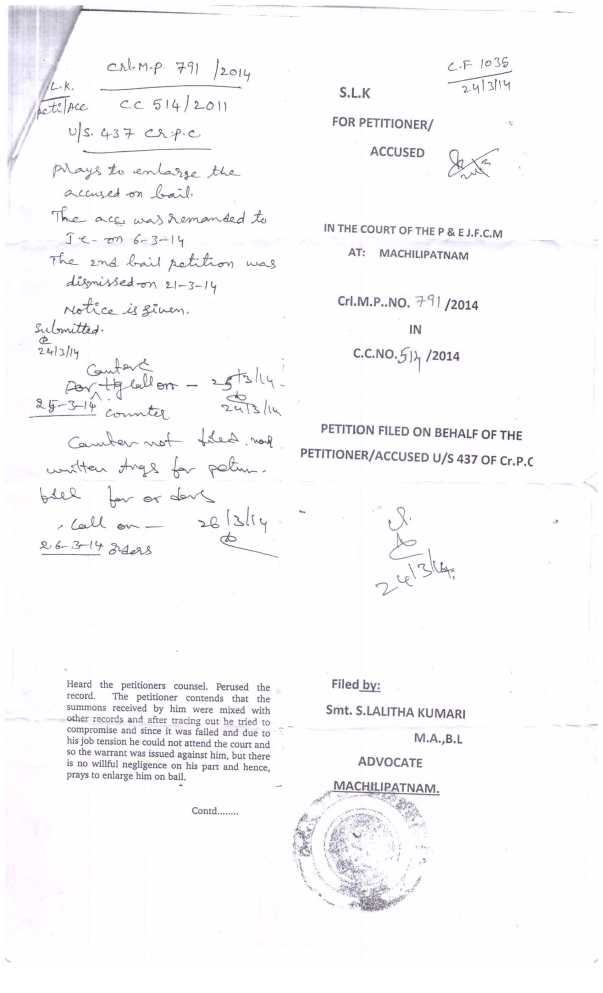 Crl.M.P. 791 /2014
L.K.
peti/Acc CC 514/2011
U/S. 437 Cr.P.C
prays to enlarge the
accused on bail.
The acc was remanded to
J.C- on 6-3-14
The 2nd bail petition was
dismissed on 21-3-14
Notice is given.
Submitted.
24/3/14
Counter
call on - 25/3/14
24/3/14
25-3-14 counter
Counter not filed.
written Args for petnr.
filed for orders
call on - 26/3/14
26-3-14 orders
Heard the petitioners counsel. Perused the
record. The petitioner contends that the
summons received by him were mixed with
other records and after tracing out he tried to
compromise and since it was failed and due to
his job tension he could not attend the court and
so the warrant was issued against him, but there
is no willful negligence on his part and hence,
prays to enlarge him on bail.
Contd........
C.F 1035
24/3/14
S.L.K
FOR PETITIONER/
ACCUSED
IN THE COURT OF THE P & E J.F.C.M
AT: MACHILIPATNAM
Crl.M.P..NO. 791 /2014
IN
C.C.NO. 514 /2014
PETITION FILED ON BEHALF OF THE
PETITIONER/ACCUSED U/S 437 OF Cr.P.C
24/3/14.
Filed by:
Smt. S.LALITHA KUMARI
M.A.,B.L
ADVOCATE
MACHILIPATNAM.